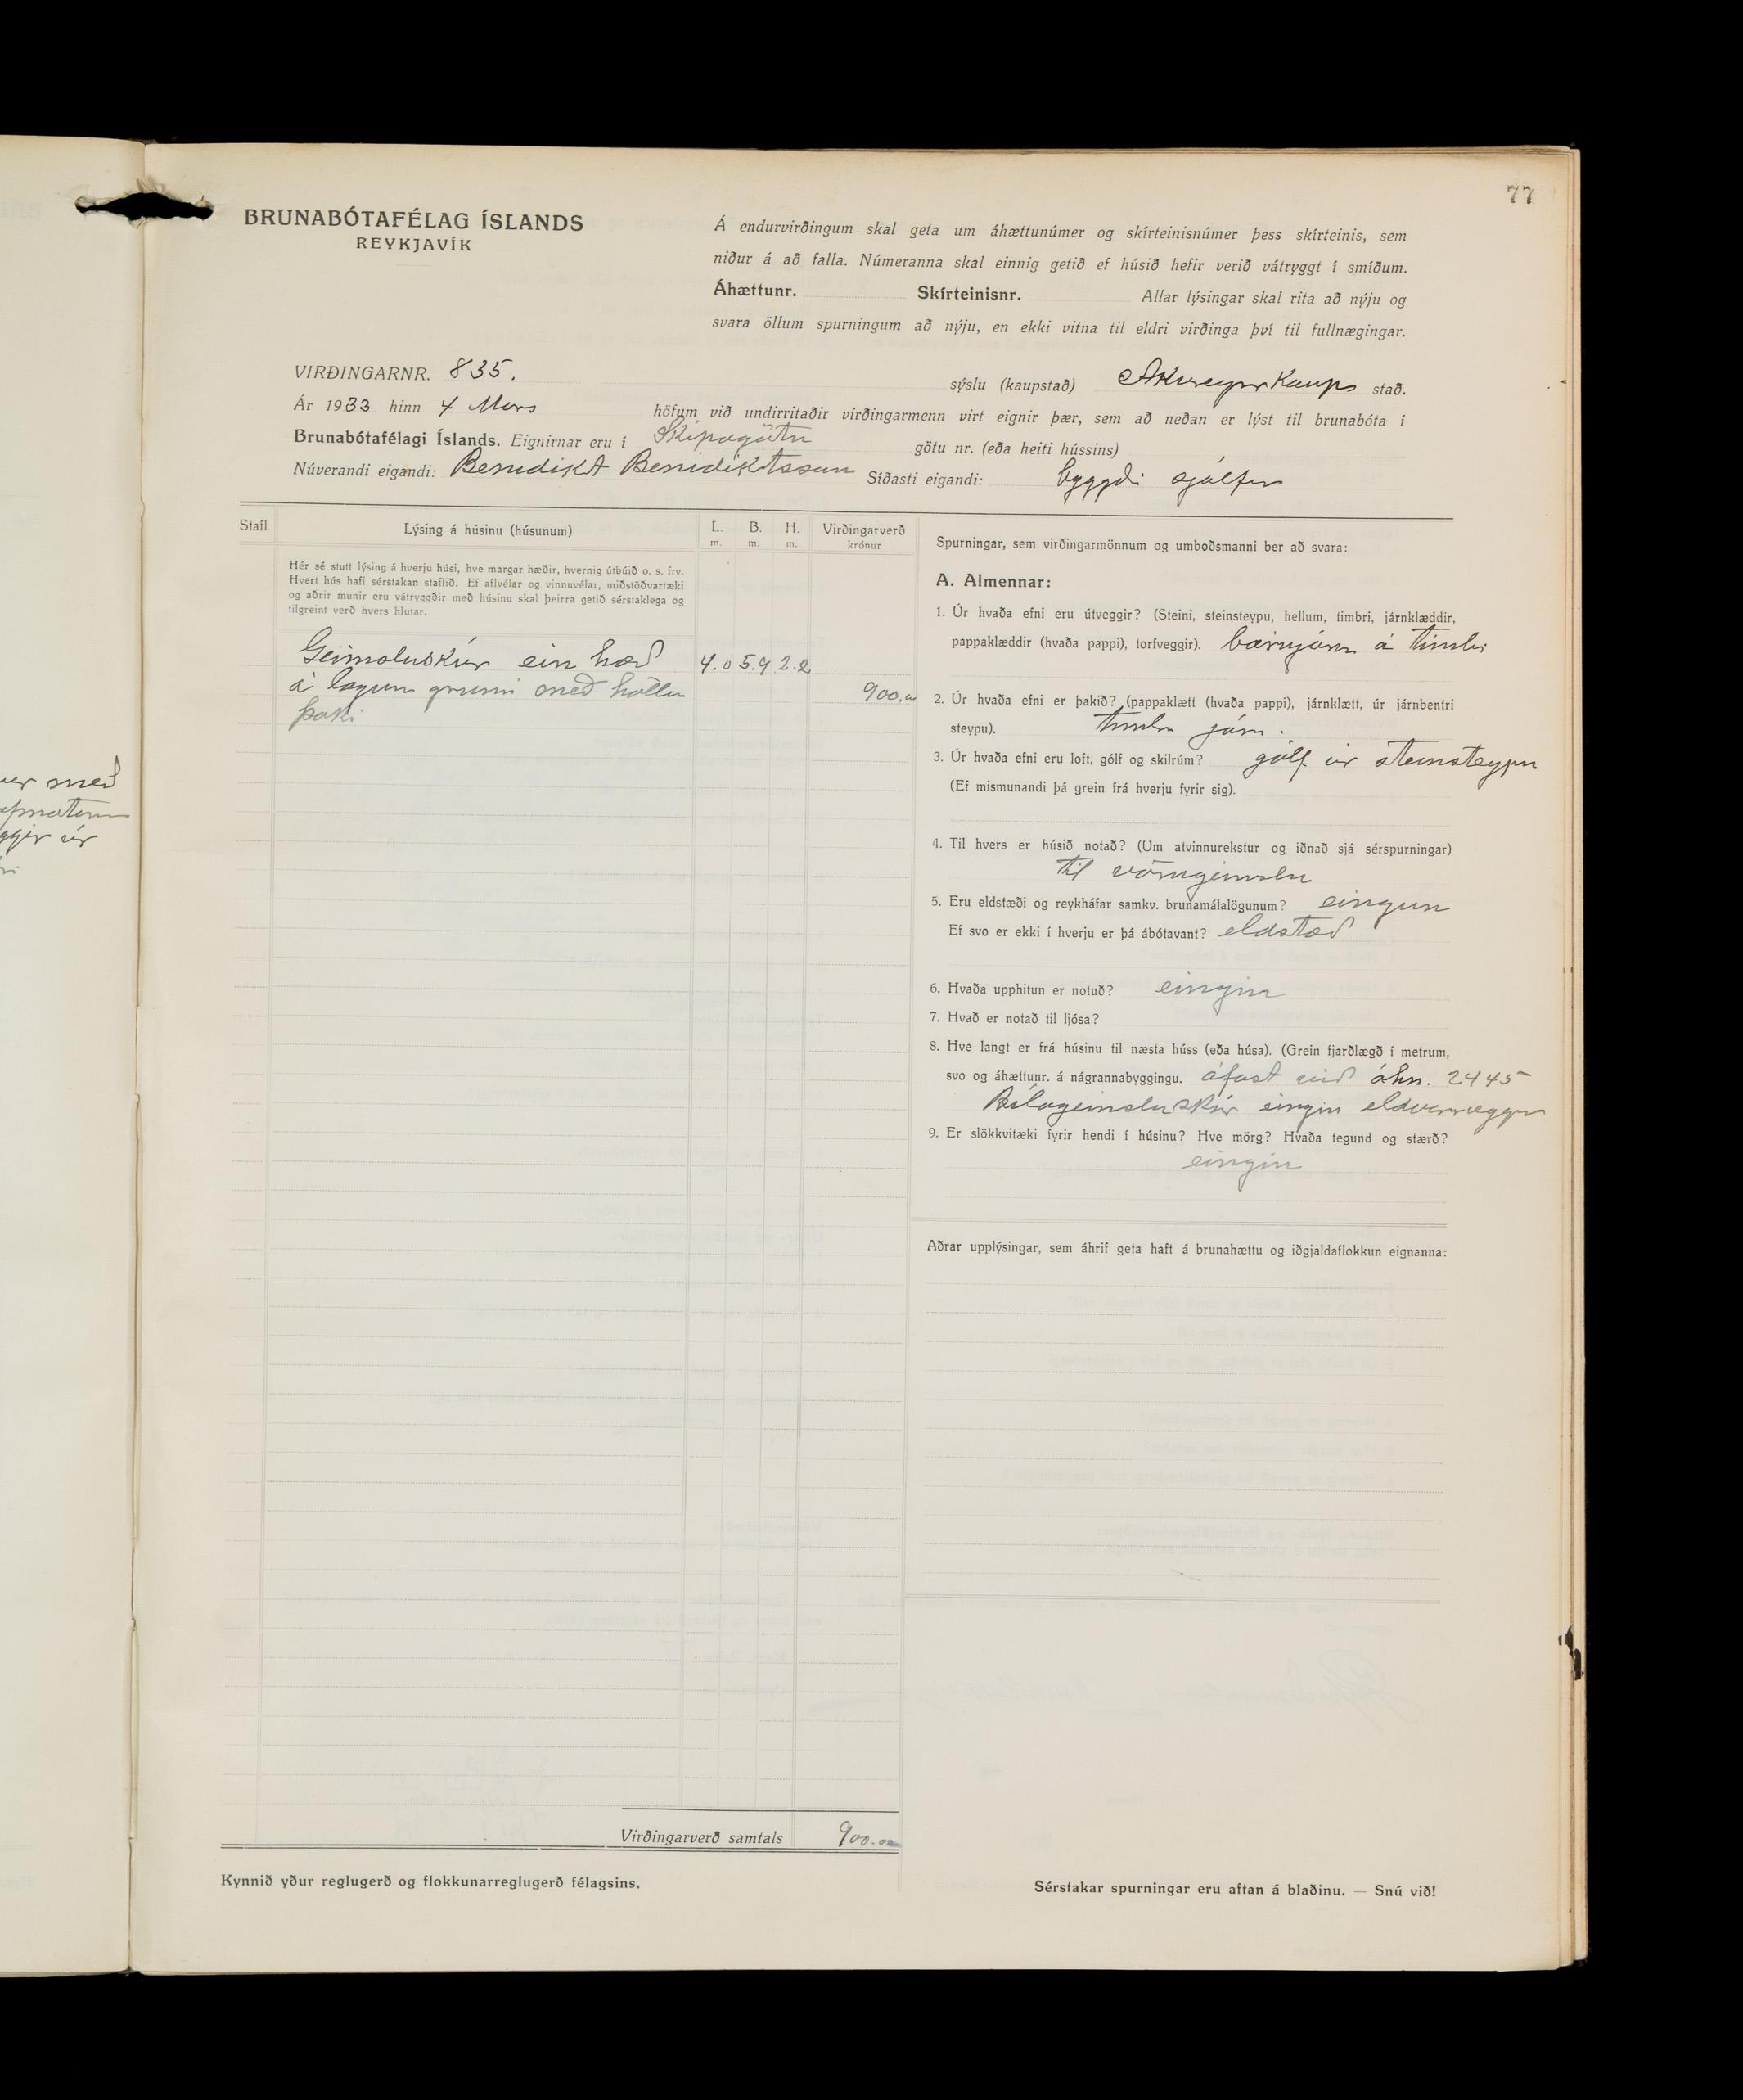 77
BRUNABÓTAFÉLAG ÍSLANDS
REYKJAVÍK
Á endurvirðingum skal geta um áhættunúmer og skírteinisnúmer þess skírteinis, sem
niður á að falla. Númeranna skal einnig getið ef húsið hefir verið vátryggt í smíðum.
Áhættunr. Skírteinisnr. Allar lýsingar skal rita að nýju og
svara öllum spurningum að nýju, en ekki vitna til eldri virðinga því til fullnægingar.
VIRÐINGARNR. 835. sýslu (kaupstað) Akureyrar Kaups stað.
Ár 1933 hinn 4 Mars höfum við undirritaðir virðingarmenn virt eignir þær, sem að neðan er lýst til brunabóta í
Brunabótafélagi Íslands. Eignirnar eru í Skipagötu götu nr. (eða heiti hússins)
Núverandi eigandi: Benidikt Benidiktsson Síðasti eigandi: byggði sjálfur
Stafl. Lýsing á húsinu (húsunum) L. m. B. m. H. m. Virðingarverð krónur
Hér sé stutt lýsing á hverju húsi, hve margar hæðir, hvernig útbúið o. s. frv.
Hvert hús hafi sérstakan staflið. Ef aflvélar og vinnuvélar, miðstöðvartæki
og aðrir munir eru vátryggðir með húsinu skal þeirra getið sérstaklega og
tilgreint verð hvers hlutar.
Geimsluskúr ein hæð 4.0 5.9 2.2
á lagum grunni með hallu 900.00
þaki
Virðingarverð samtals 900.00
Kynnið yður reglugerð og flokkunarreglugerð félagsins.
Spurningar, sem virðingarmönnum og umboðsmanni ber að svara:
A. Almennar:
1. Úr hvaða efni eru útveggir? (Steini, steinsteypu, hellum, timbri, járnklæddir,
pappaklæddir (hvaða pappi), torfveggir). bárujárn á timbri
2. Úr hvaða efni er þakið? (pappaklætt (hvaða pappi), járnklætt, úr járnbentri
steypu). timbri járn.
3. Úr hvaða efni eru loft, gólf og skilrúm? gólf úr steinsteypu
(Ef mismunandi þá grein frá hverju fyrir sig).
4. Til hvers er húsið notað? (Um atvinnurekstur og iðnað sjá sérspurningar)
til vörugeimslu
5. Eru eldstæði og reykháfar samkv. brunamálalögunum? eingun
Ef svo er ekki í hverju er þá ábótavant? eldstæð
6. Hvaða upphitun er notuð? eingin
7. Hvað er notað til ljósa?
8. Hve langt er frá húsinu til næsta húss (eða húsa). (Grein fjarðlægð í metrum,
svo og áhættunr. á nágrannabyggingu. áfast við áhn. 2445
Bílageimsluskúr eingin eldvarnveggur
9. Er slökkvitæki fyrir hendi í húsinu? Hve mörg? Hvaða tegund og stærð?
eingin
Aðrar upplýsingar, sem áhrif geta haft á brunahættu og iðgjaldaflokkun eignanna:
Sérstakar spurningar eru aftan á blaðinu. — Snú við!